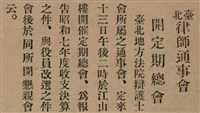 臺北律師通事會
開定期總會
臺北地方法院辯護士
會所屬之通事會。定來
十三日午後二時於江山
樓開催定期總會。爲報
告昭和七年度收支決算
之件。與役員改選之件
會後於同所開懇親會
云。